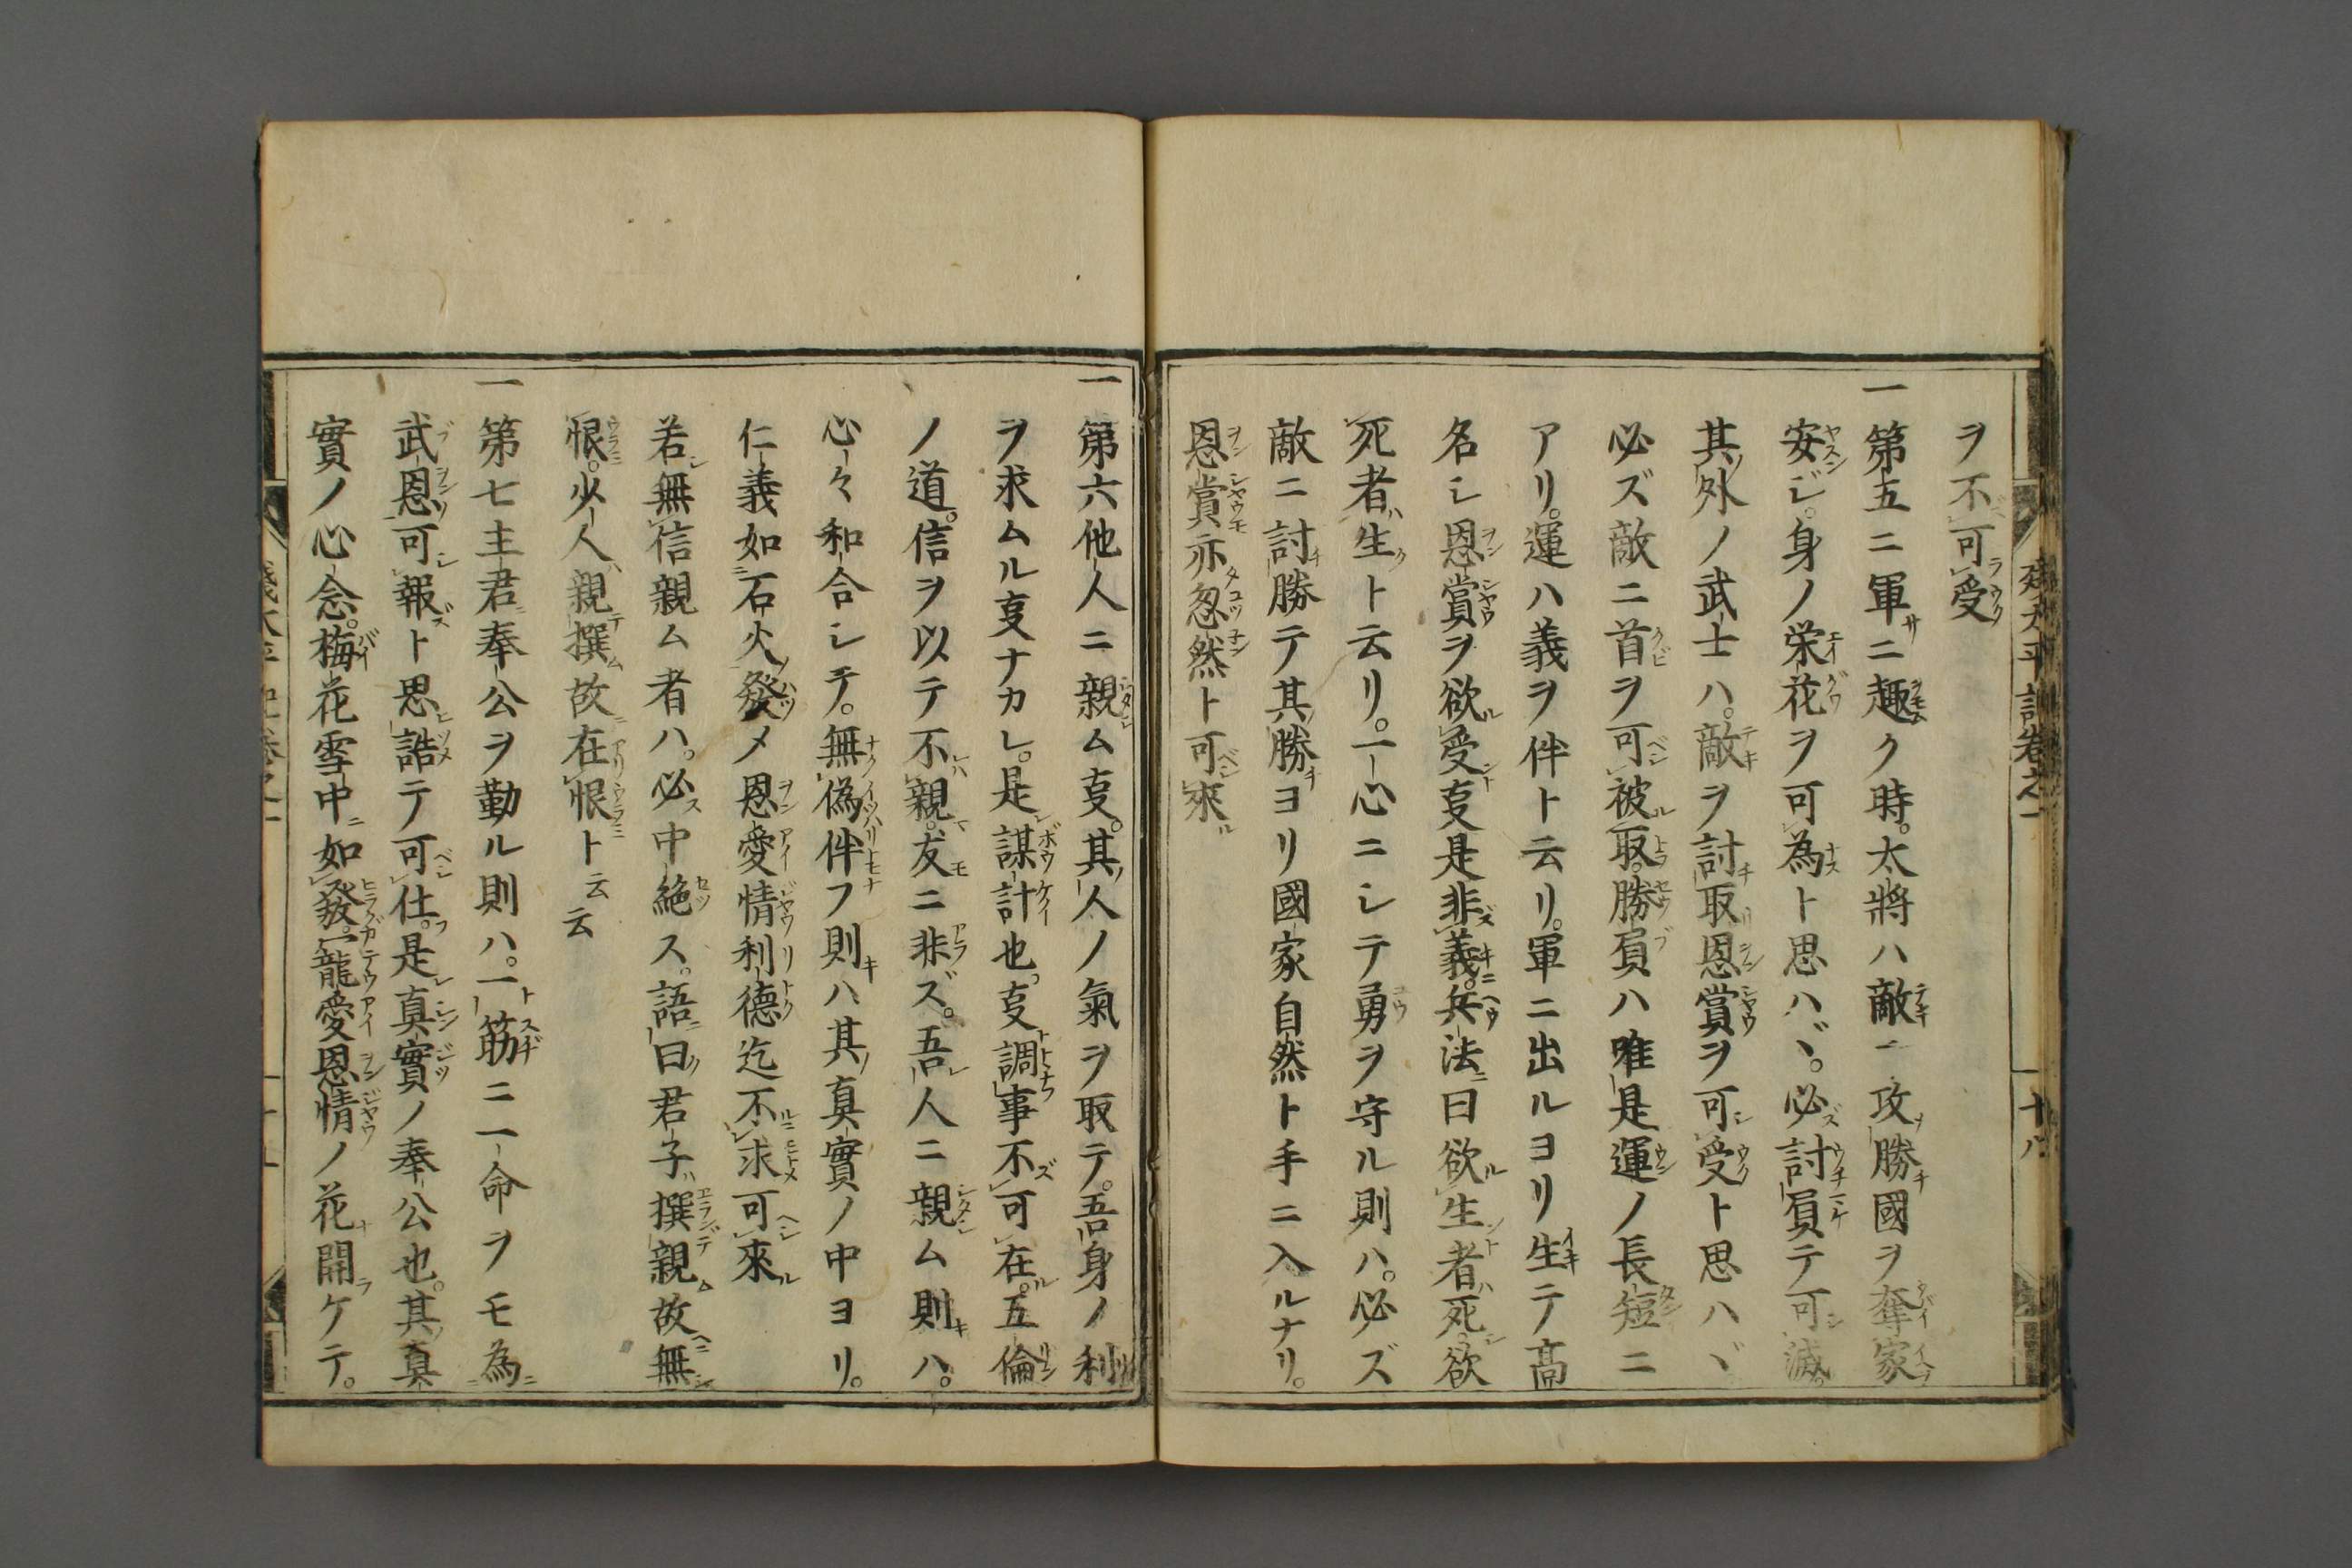 ヲ不可受
一第五ニ軍ニ趣ク時。大將ハ敵ニ攻勝國ヲ奪家
安ジ。身ノ栄花ヲ可為ト思ハヾ。必討負テ可滅。
其外ノ武士ハ。敵ヲ討取恩賞ヲ可受ト思ハヾ
必ズ敵ニ首ヲ可被取。勝負ハ唯是運ノ長短ニ
アリ。運ハ義ヲ伴ト云リ。軍ニ出ルヨリ生テ高
名シ恩賞ヲ欲受亊是非義。兵法曰欲生者死。欲
死者生ト云リ。一心ニシテ勇ヲ守ル則ハ。必ズ
敵ニ討勝テ其勝ヨリ國家自然ト手ニ入ルナリ。
恩賞亦忽然ト可來
一第六他人ニ親ム亊。其人ノ氣ヲ取テ。吾身ノ利
ヲ求ムル亊ナカレ。是謀計也。亊調事不可在。五倫
ノ道。信ヲ以テ不親。友ニ非ズ。吾人ニ親ム則ハ。
心々和合シテ。無偽伴フ則ハ其真實ノ中ヨリ。
仁義如石火發メ恩愛情利德迄不求可來
若無信親ム者ハ。必中絶ス。語曰君子撰親故無
恨。少人親撰故在恨ト云云
一第七主君奉公ヲ勤ル則ハ。一筋ニ一命ヲモ為
武恩可報ト思詰テ可仕。是真實ノ奉公也。其真
實ノ心念。梅花雪中如發。寵愛恩情ノ花開ケテ。